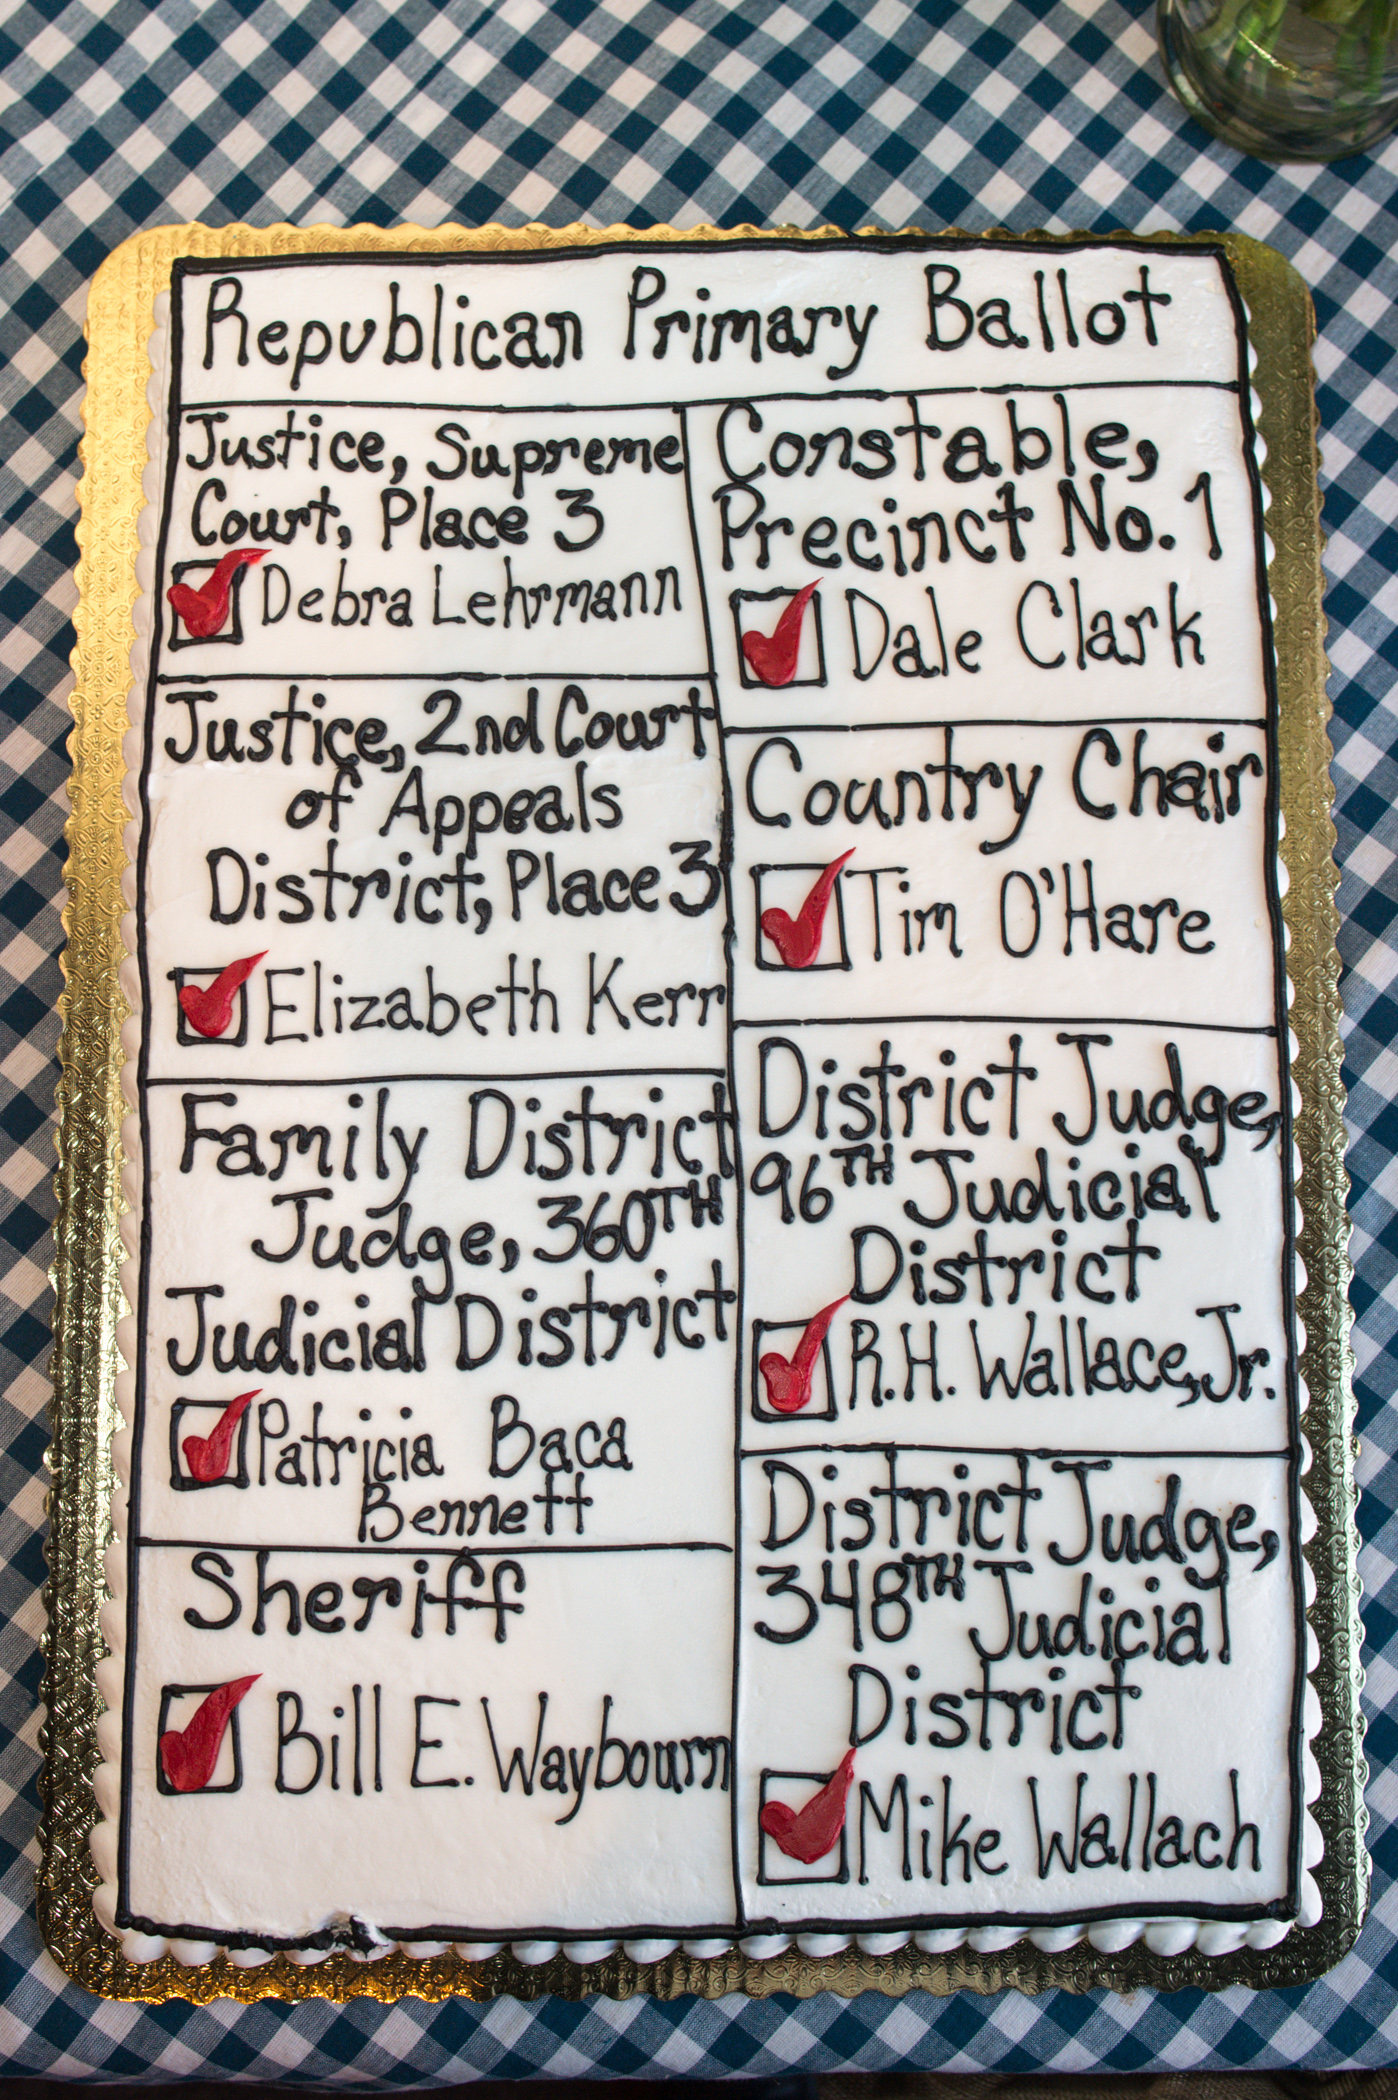 Republican Primary Ballot
Justice, Supreme
Court, Place 3
Debra Lehrmann
Justice, 2nd Court
of Appeals
District, Place 3
Elizabeth Kerr
Family District
Judge, 360TH
Judicial District
Patricia Baca
Bennett
Sheriff
Bill E. Waybourn
Constable,
Precinct No. 1
Dale Clark
Country Chair
Tim O'Hare
District Judge,
96TH Judicial
District
R.H. Wallace, Jr.
District Judge,
348TH Judicial
District
Mike Wallach